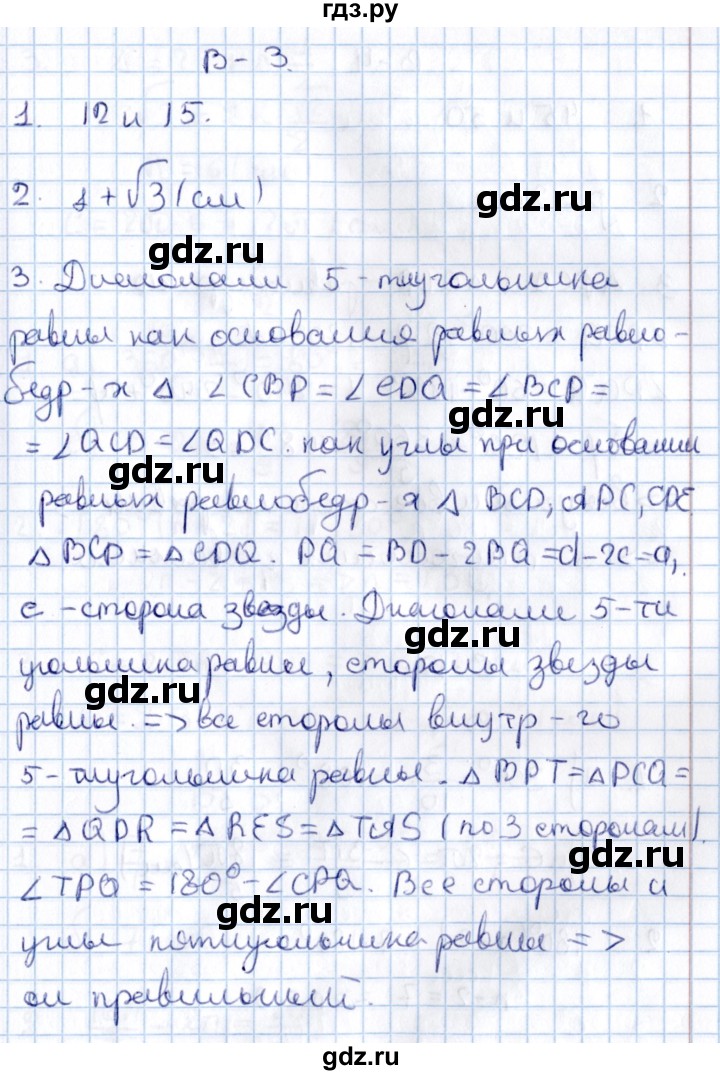 гдз.ру
В - 3.
1. 12 и 15.
2. 1 + √3 (см)
gdz.ru
gdz.ru
3. Диагонали 5 - тиугольника
равны как основания равных равно -
бедр - х Δ ∠CBP = ∠CDQ = ∠BCP =
gdz.ru
= ∠QCD = ∠QDC. как углы при основании
gdz.ru
равных равнобедр - х Δ BCD, ABC, CDE
Δ BCP = Δ CDQ. PQ = BD - 2BQ = d - 2c = a,
c - сторона звезды. Диагонали 5 - ти
gdz.ru
угольника равны, стороны звезды
gdz.ru
равны. => все стороны внутр - го
5 - тиугольника равны. Δ BPT = Δ PCQ =
= Δ QDR = Δ RES = Δ TAS (по 3 сторонам).
gdz.ru
∠TPQ = 180° - ∠CPQ. Все стороны и
gdz.ru
углы пятиугольника равны =>
он правильный.
gdz.ru
gdz.ru